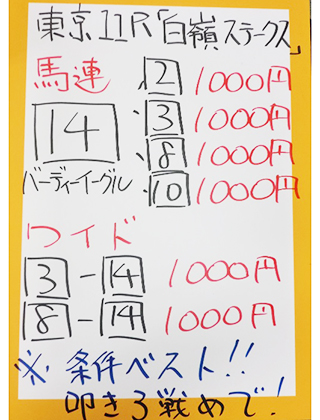 東京11R「白嶺ステークス」
馬連 2 1000円
14 3 1000円
8 1000円
バーディーイーグル 10 1000円
ワイド
3-14 1000円
8-14 1000円
※条件ベスト!!
叩き3戦めで!